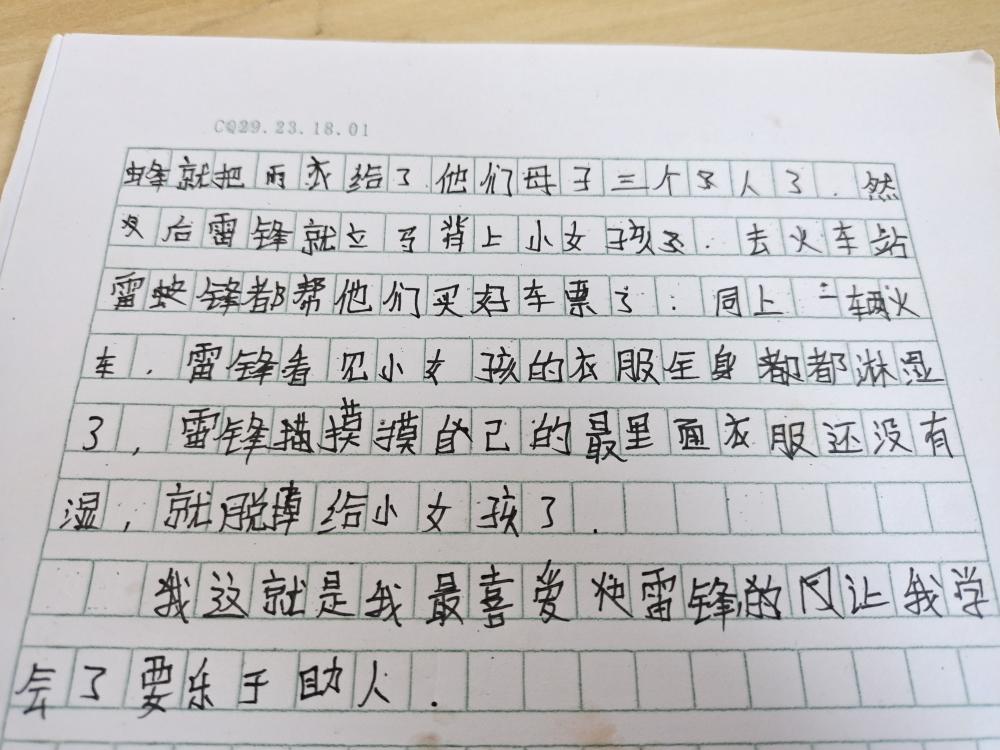 CQ29.23.18.01
蜂就把雨衣给了他们母子三个又人了.然
没后雷锋就立马背上小女孩又.去火车站
雷蚣锋都帮他们买好车票了:同上一辆火
车.雷锋看见小女孩的衣服全身都都淋湿
了,雷锋描摸摸自己的最里面衣服还没有
湿,就脱掉给小女孩了.
我这就是我最喜爱他雷锋的 让我学
会了要乐于助人.